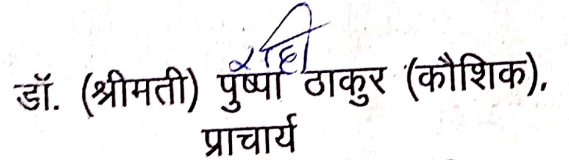 सही
डॉ. (श्रीमती) पुष्पा ठाकुर (कौशिक),
प्राचार्य